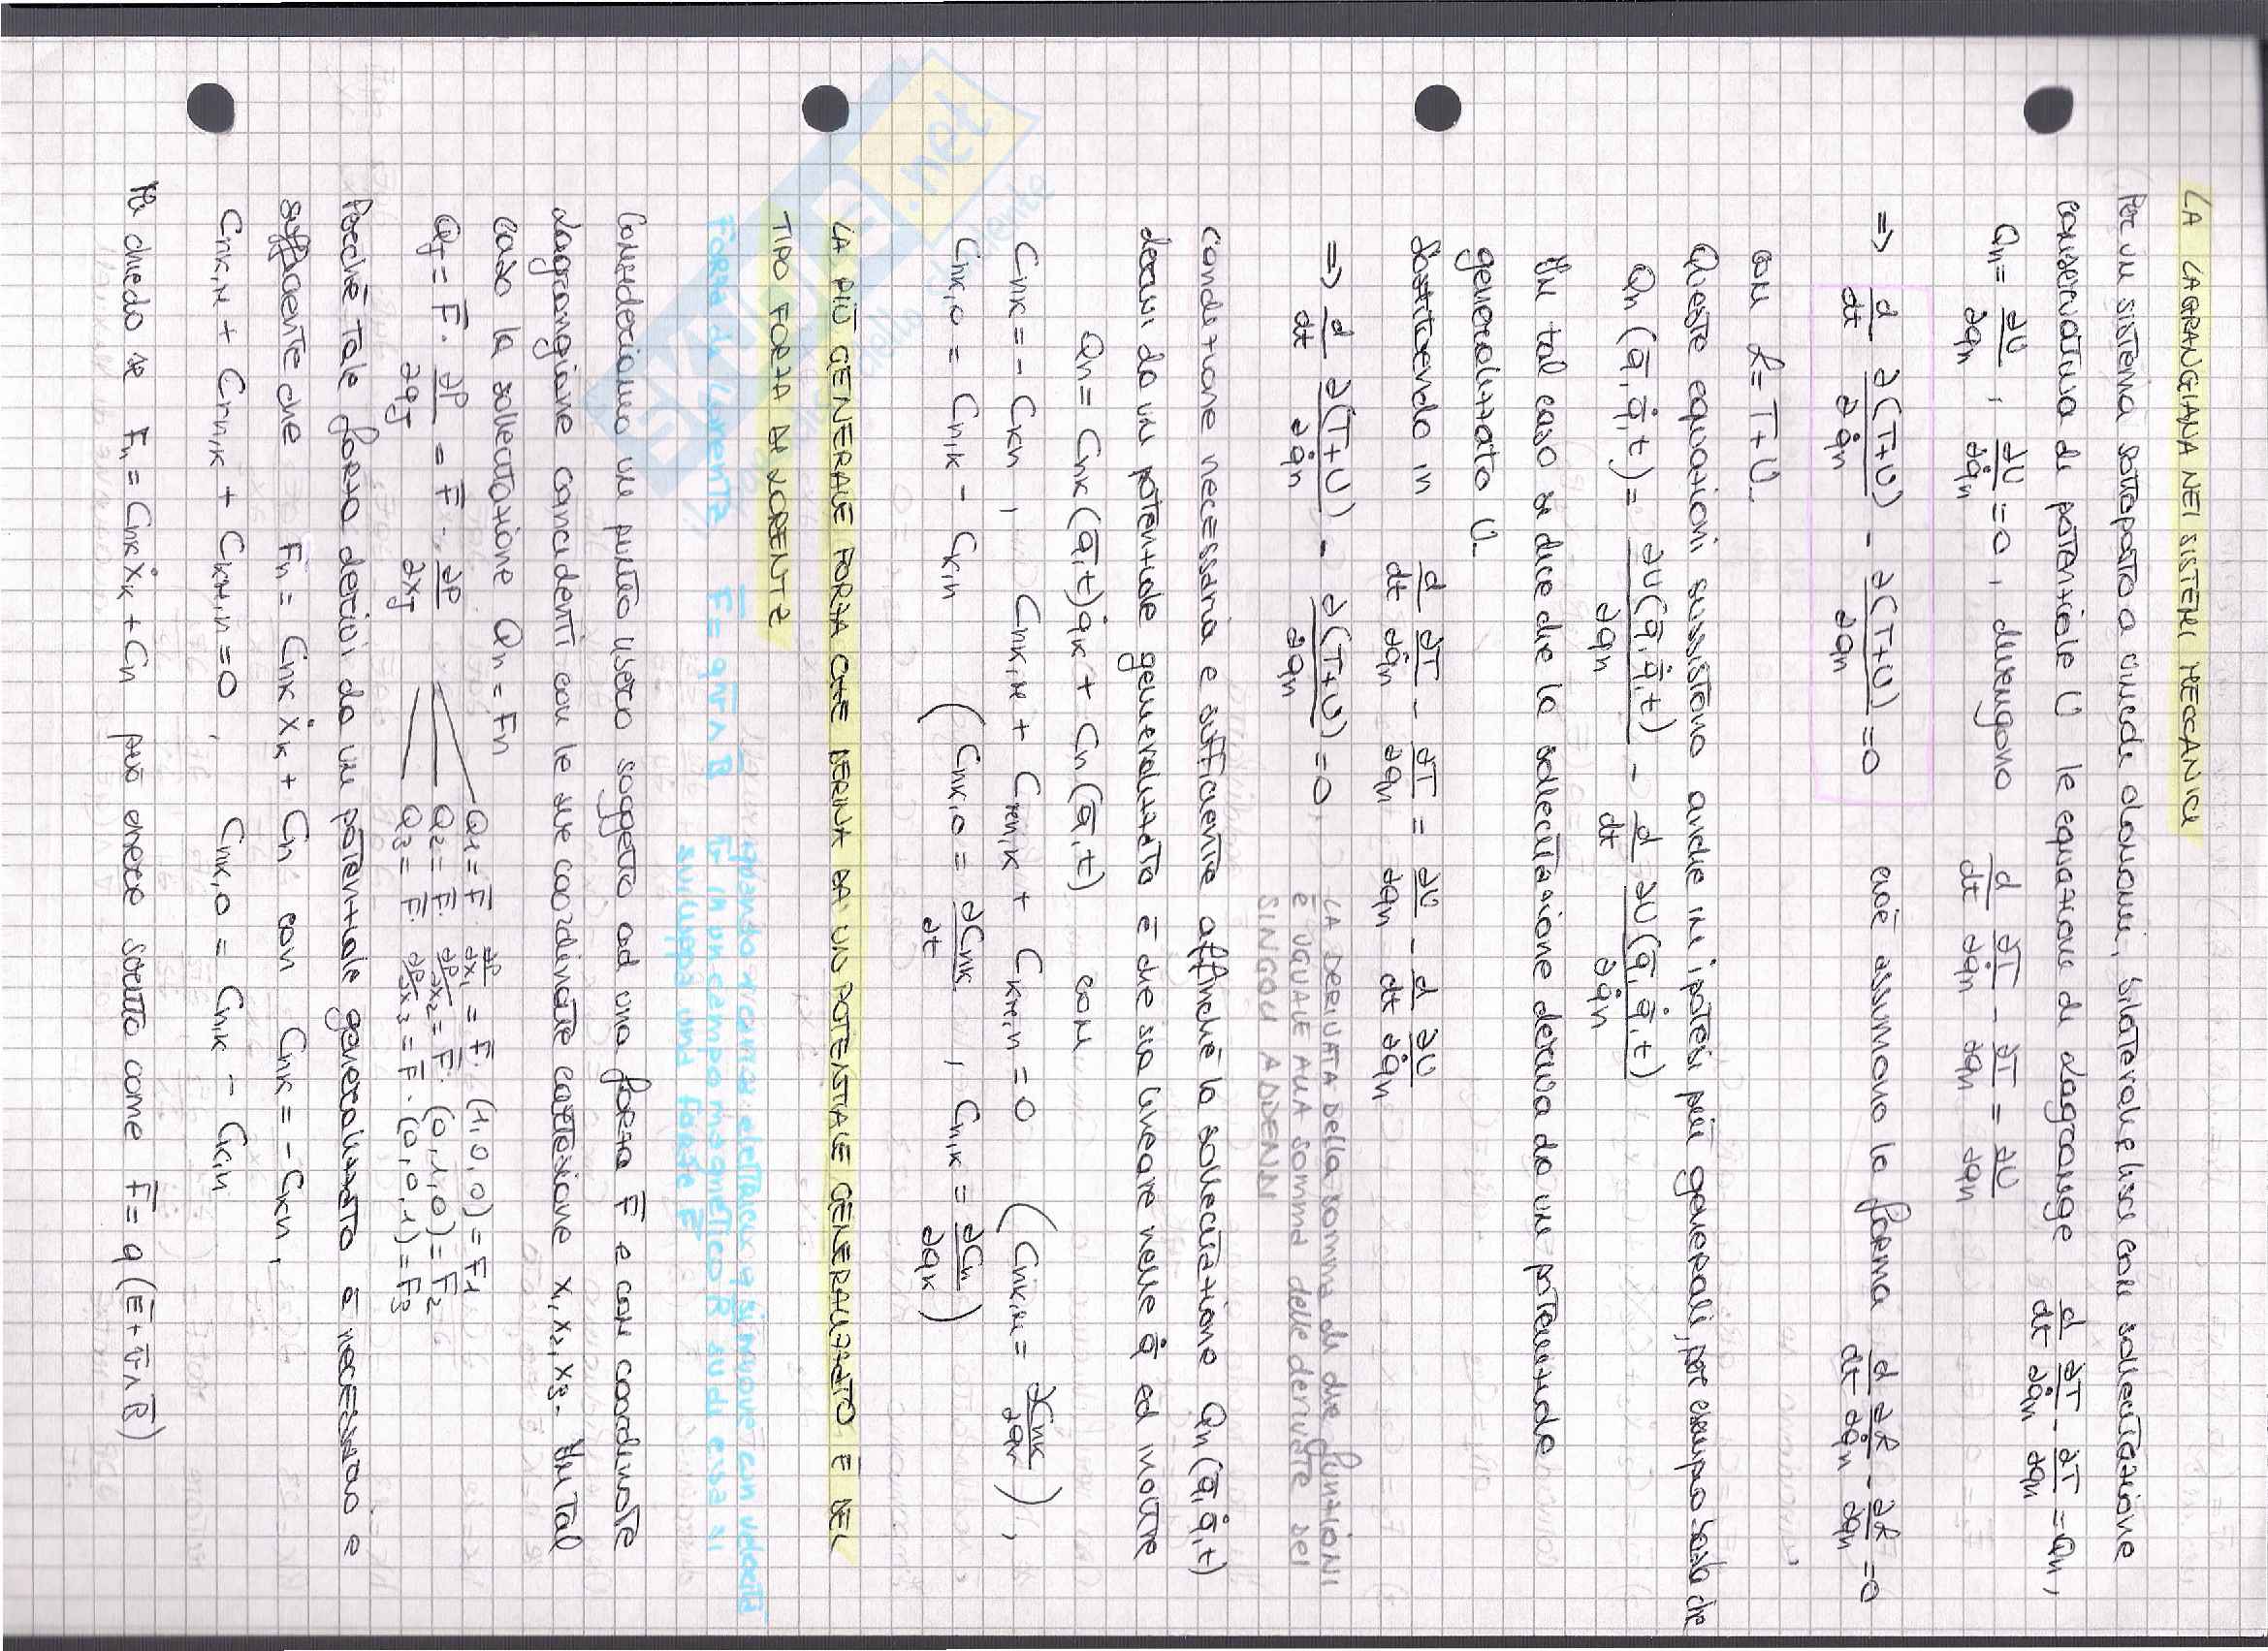 LA LAGRANGIANA NEI SISTEMI MECCANICI
Per un sistema sottoposto a vincoli olonomi, bilaterali, lisci con sollecitazione
conservativa di potenziale U le equazioni di Lagrange d/dt ∂T/∂q̇n - ∂T/∂qn = Qn,
Qn = ∂U/∂qn , ∂U/∂q̇n = 0 , divengono d/dt ∂T/∂q̇n - ∂T/∂qn = ∂U/∂qn
=> d/dt ∂(T+U)/∂q̇n - ∂(T+U)/∂qn = 0 cioè assumono la forma d/dt ∂L/∂q̇n - ∂L/∂qn = 0
con L = T+U.
Queste equazioni sussistono anche in ipotesi più generali, per esempio basta che
Qn (q̄, q̄̇, t) = ∂U(q̄, q̄̇, t)/∂qn - d/dt ∂U(q̄, q̄̇, t)/∂q̇n
In tal caso si dice che la sollecitazione deriva da un potenziale
generalizzato U.
Sostituendo in d/dt ∂T/∂q̇n - ∂T/∂qn = ∂U/∂qn - d/dt ∂U/∂q̇n
=> d/dt ∂(T+U)/∂q̇n - ∂(T+U)/∂qn = 0,
LA DERIVATA della somma di due funzioni
È UGUALE ALLA SOMMA delle derivate dei
SINGOLI ADDENDI
Condizione necessaria e sufficiente affinché la sollecitazione Qn (q̄, q̄̇, t)
derivi da un potenziale generalizzato è che sia lineare nelle q̄̇ ed inoltre
Qn = Cnk (q̄, t) q̇k + Cn (q̄, t) con
Cnk = - Ckn ,
Cnk,0 = Cn,k - Ck,n (Cnk,0 = ∂Cnk/∂t , Cn,k = ∂Cn/∂qk)
LA PIÙ GENERALE FORZA CHE DERIVA DA UN POTENZIALE GENERALIZZATO È DEL
TIPO FORZA DI LORENTZ
Forza di Lorentz F̄ = q v̄ ∧ B̄
quando a carica elettrica q si muove con velocità
v̄ in un campo magnetico B su di essa si
sviluppa una forza F̄
Consideriamo un punto libero soggetto ad una forza F̄ e con coordinate
Lagrangiane coincidenti con le sue coordinate cartesiane x1, x2, x3. In tal
caso la sollecitazione Qn = Fn
QJ = F̄ · ∂P/∂qJ = F̄ · ∂P/∂xJ
Q1 = F̄ · ∂P/∂x1 = F̄ · (1,0,0) = F1
Q2 = F̄ · ∂P/∂x2 = F̄ · (0,1,0) = F2
Q3 = F̄ · ∂P/∂x3 = F̄ · (0,0,1) = F3
Perché tale forza derivi da un potenziale generalizzato è necessario e
sufficiente che Fn = Cnk ẋk + Cn con Cnk = - Ckn ,
Cnk,0 = Cn,k - Ck,n
Mi chiedo se Fn = Cnk ẋk + Cn può essere scritto come F̄ = q (Ē + v̄ ∧ B̄)
SKUOLA.net